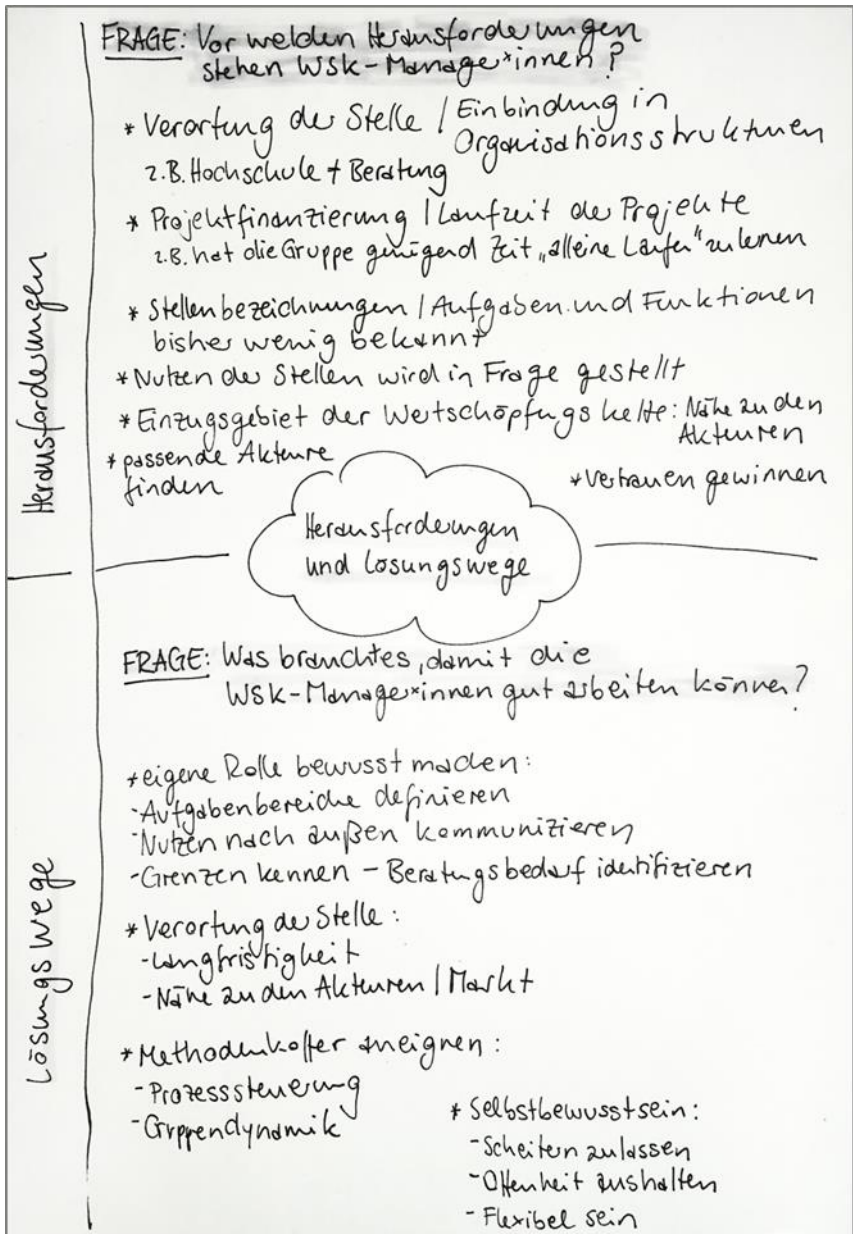 Herausforderungen
FRAGE: Vor welchen Herausforderungen
stehen WSK-Manager*innen?
* Verortung der Stelle / Einbindung in
Organisationsstrukturen
z.B. Hochschule + Beratung
* Projektfinanzierung / Laufzeit der Projekte
z.B. hat die Gruppe genügend Zeit „alleine Laufen" zu lernen
* Stellenbezeichnungen / Aufgaben und Funktionen
bisher wenig bekannt
* Nutzen der Stellen wird in Frage gestellt
* Einzugsgebiet der Wertschöpfungskette: Nähe zu den
Akteuren
* passende Akteure
finden
* Vertrauen gewinnen
Herausforderungen
und Lösungswege
Lösungswege
FRAGE: Was braucht es, damit die
WSK-Manager*innen gut arbeiten können?
* eigene Rolle bewusst machen:
- Aufgabenbereiche definieren
- Nutzen nach außen kommunizieren
- Grenzen kennen – Beratungsbedarf identifizieren
* Verortung der Stelle:
- Langfristigkeit
- Nähe zu den Akteuren / Markt
* Methodenkoffer aneignen:
- Prozesssteuerung
- Gruppendynamik
* Selbstbewusstsein:
- Scheitern zulassen
- Offenheit aushalten
- Flexibel sein